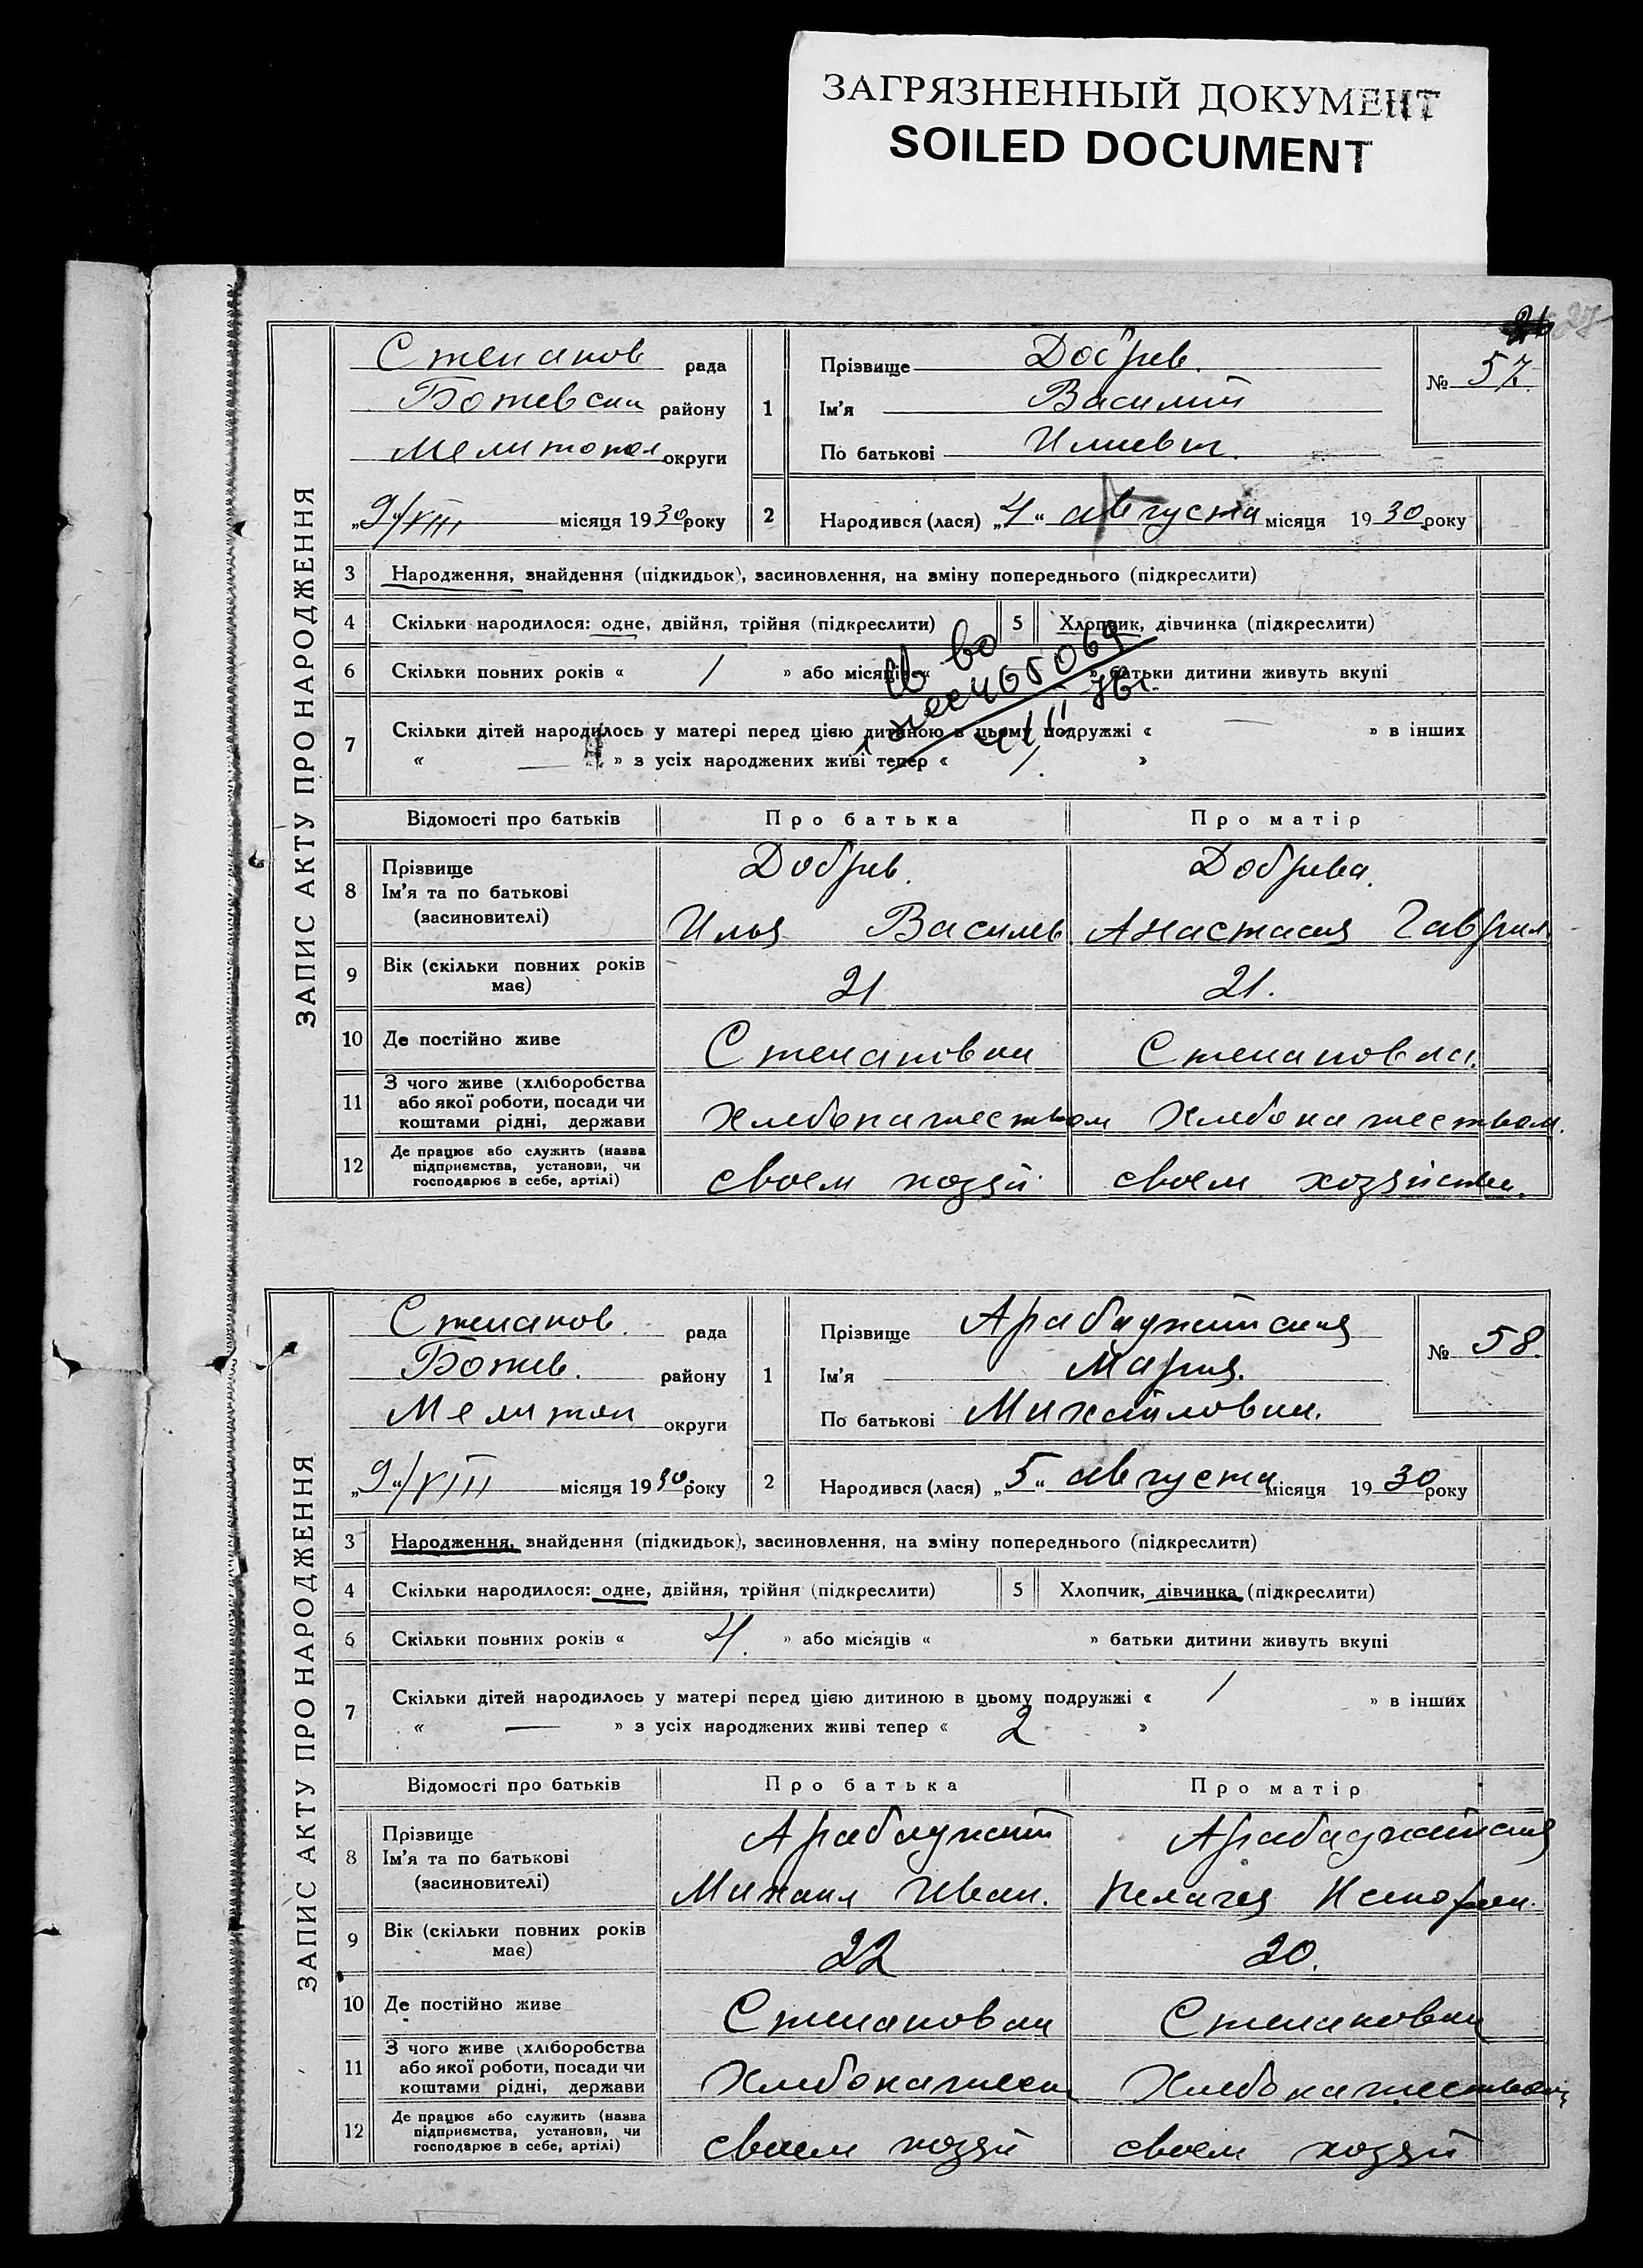 ЗАГРЯЗНЕННЫЙ ДОКУМЕНТ
SOILED DOCUMENT
27
ЗАПИС АКТУ ПРО НАРОДЖЕННЯ
Степанов рада
Божевски району
Мелитопол округи
„9“/VIII місяця 1930 року
1 Прізвище Добрев.
Ім'я Василий
По батькові Илиевич.
№ 57
2 Народився (лася) „4“ августа місяця 1930 року
3 Народження, знайдення (підкидьок), засиновлення, на зміну попереднього (підкреслити)
4 Скільки народилося: одне, двійня, трійня (підкреслити) 5 Хлопчик, дівчинка (підкреслити)
6 Скільки повних років « 1 » або місяців « » батьки дитини живуть вкупі
7 Скільки дітей народилось у матері перед цією дитиною в цьому подружжі « — » в інших
« — » з усіх народжених живі тепер « 1. »
Відомості про батьків Про батька Про матір
8 Прізвище
Ім'я та по батькові
(засновителі)
Добрев. Добрева.
Илья Василев Анастасия Гаврил.
9 Вік (скільки повних років має) 21 21.
10 Де постійно живе Степановки Степановка.
11 З чого живе (хліборобства
або якої роботи, посади чи
коштами рідні, держави
Хлебопашеством Хлебопашеством.
12 Де працює або служить (назва
підприємства, установи, чи
господарює в себе, артілі)
своем хозяй своем хозяйстве.
ЗАПИС АКТУ ПРО НАРОДЖЕННЯ
Степанов. рада
Божев. району
Мелитоп округи
„9“/VIII місяця 1930 року
1 Прізвище Арабаджийская
Ім'я Мария.
По батькові Михайловна.
№ 58.
2 Народився (лася) „5“ августа місяця 1930 року
3 Народження, знайдення (підкидьок), засиновлення, на зміну попереднього (підкреслити)
4 Скільки народилося: одне, двійня, трійня (підкреслити) 5 Хлопчик, дівчинка (підкреслити)
6 Скільки повних років « 4. » або місяців « » батьки дитини живуть вкупі
7 Скільки дітей народилось у матері перед цією дитиною в цьому подружжі « 1 » в інших
« — » з усіх народжених живі тепер « 2 »
Відомості про батьків Про батька Про матір
8 Прізвище
Ім'я та по батькові
(засиновителі)
Арабаджий Арабаджийская
Михаил Иван. Пелагея
9 Вік (скільки повних років має) 22 20.
10 Де постійно живе Степановки Степановки
11 З чого живе (хліборобства
або якої роботи, посади чи
коштами рідні, держави
Хлебопашест Хлебопашеством
12 Де працює або служить (назва
підприємства, установи, чи
господарює в себе, артілі)
своем хозяй своем хозяй